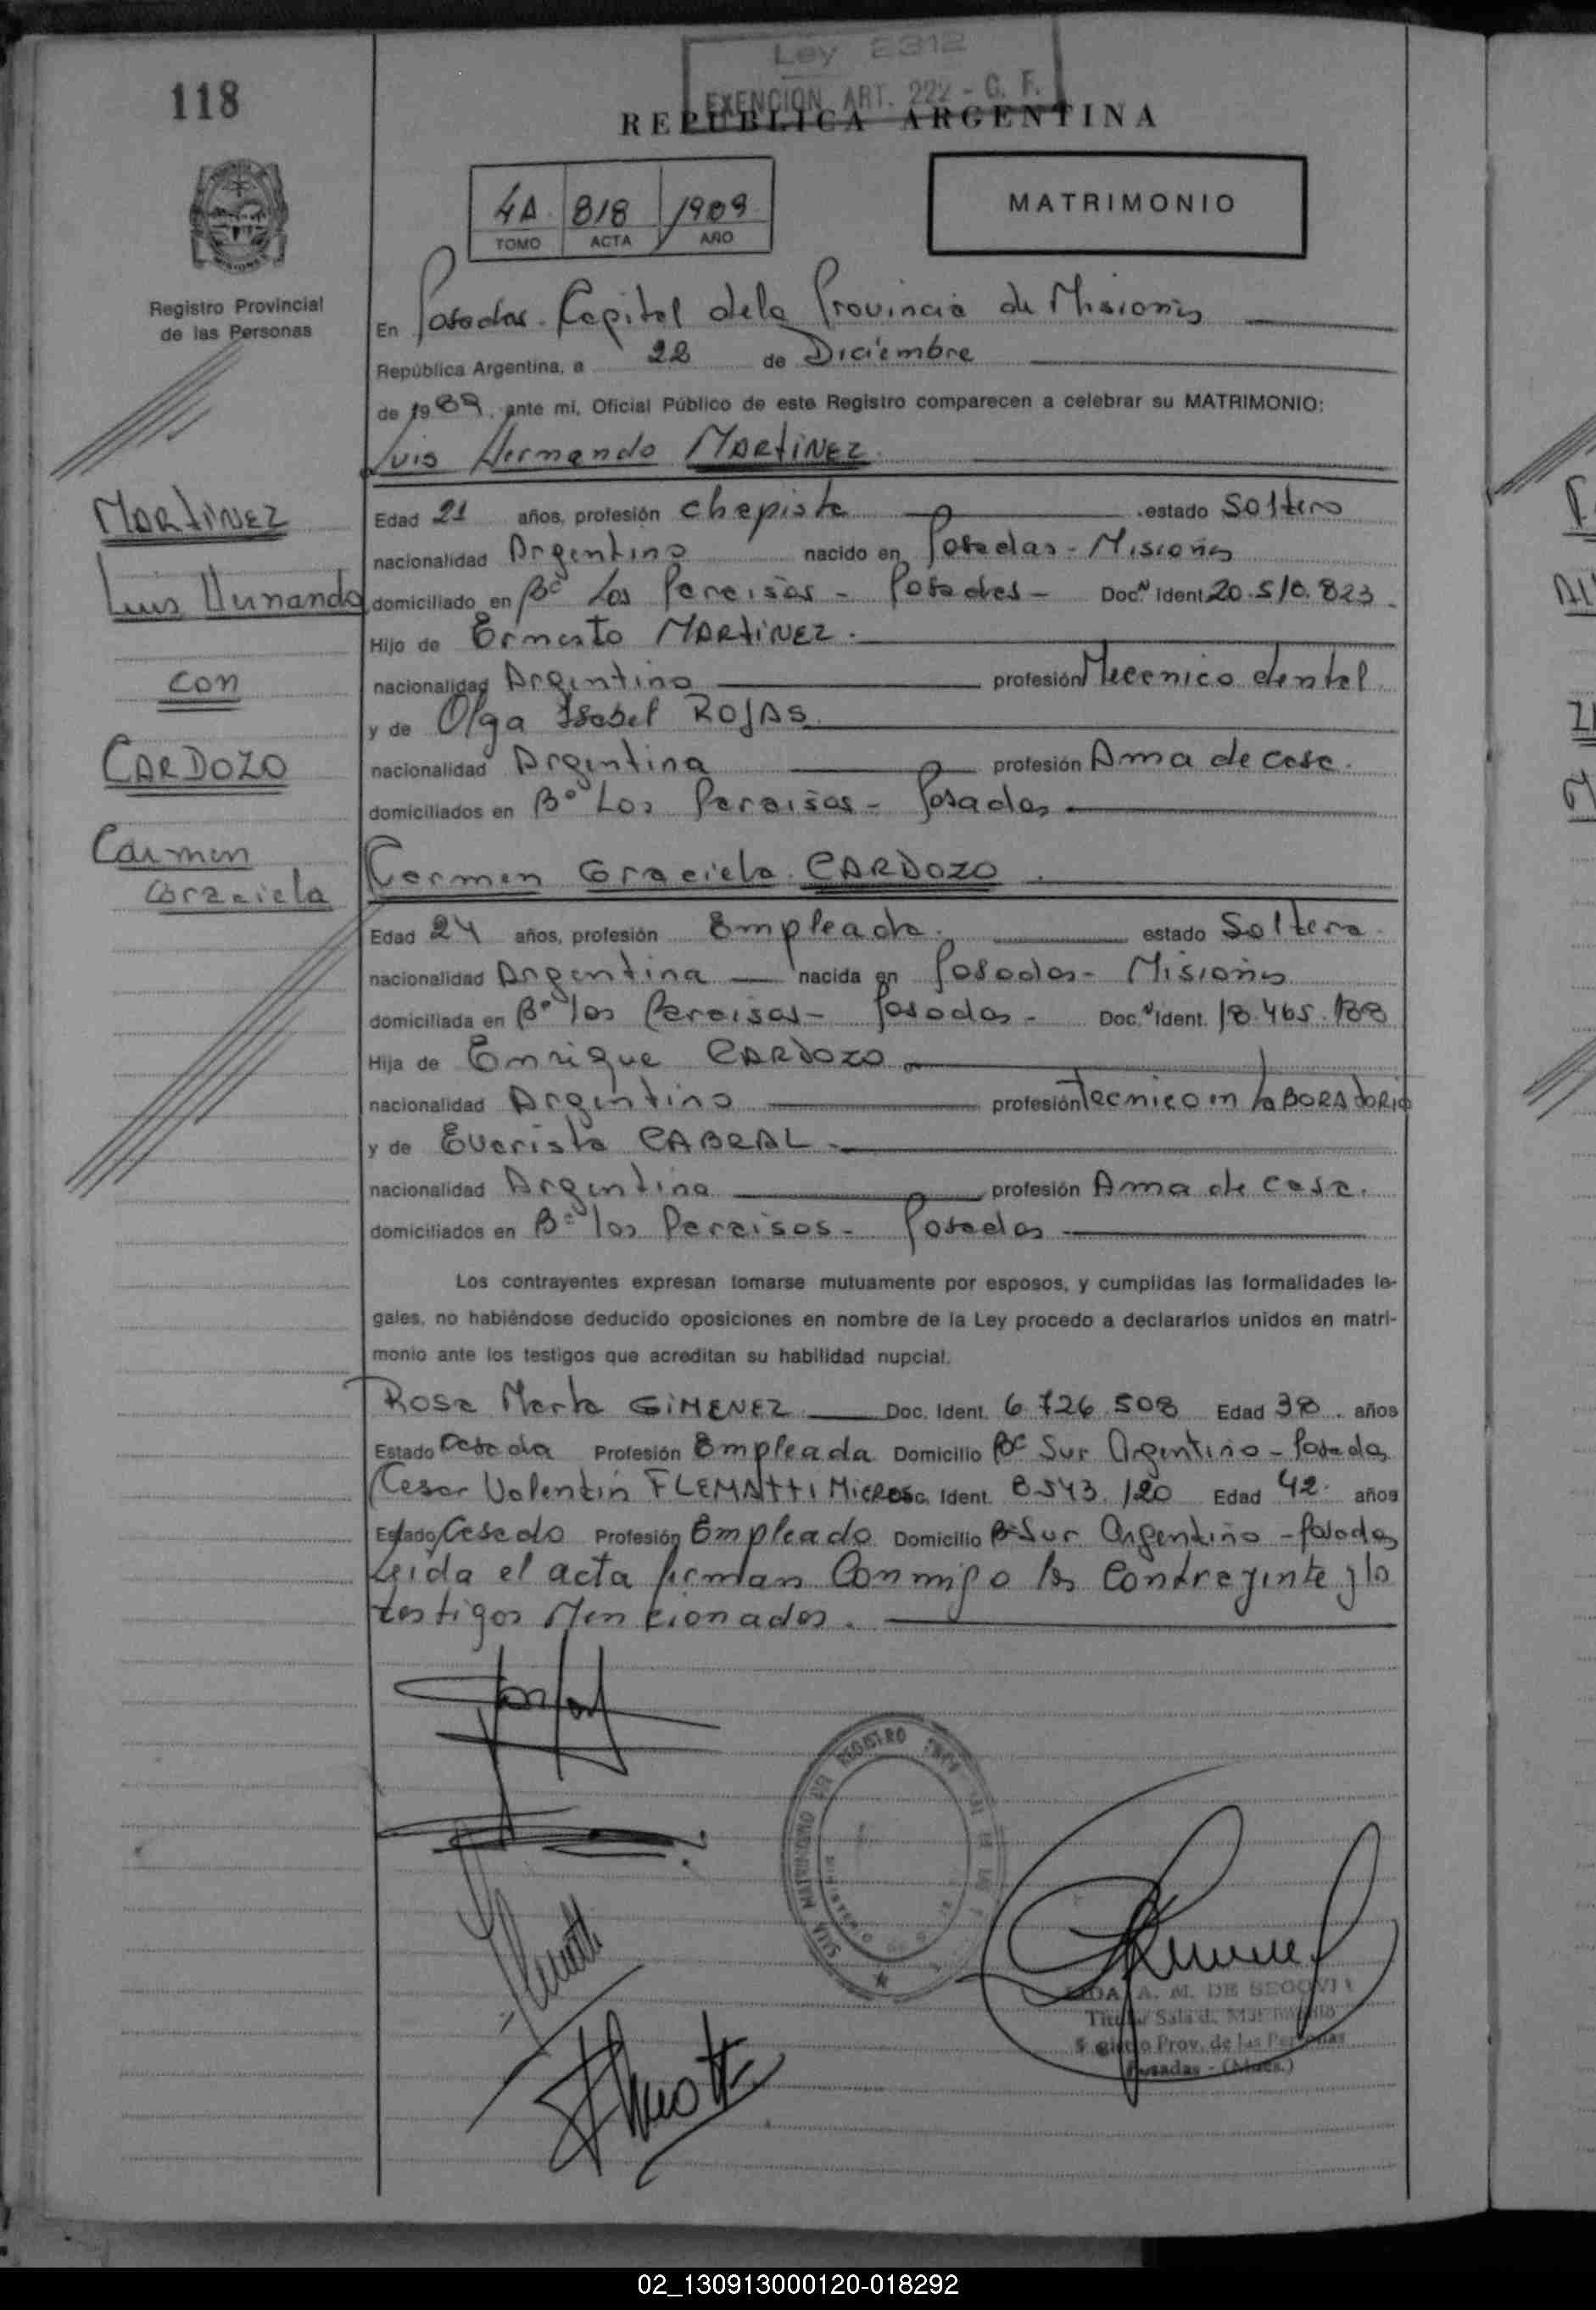 118
Ley 2312
EXENCION ART. 222 - G. F.
REPUBLICA ARGENTINA
4A 818 1989
TOMO ACTA AÑO
MATRIMONIO
Registro Provincial
de las Personas
En Posadas. Capital de la Provincia de Misiones
República Argentina, a 22 de Diciembre
de 1989, ante mi, Oficial Público de este Registro comparecen a celebrar su MATRIMONIO:
Luis Hernando MARTINEZ
MARTINEZ
Luis Hernando
con
CARDOZO
Carmen
Graciela
Edad 21 años, profesión Chapista estado Soltero
nacionalidad Argentino nacido en Posadas - Misiones
domiciliado en Bº Los Paraisos - Posadas - Doc. Ident. 20.510.823.
Hijo de Ernesto MARTINEZ.
nacionalidad Argentino profesión Mecanico dental
y de Olga Isabel ROJAS.
nacionalidad Argentina profesión Ama de casa.
domiciliados en Bº Los Paraisos - Posadas
Carmen Graciela CARDOZO.
Edad 24 años, profesión Empleada. estado Soltera.
nacionalidad Argentina nacida en Posadas - Misiones
domiciliada en Bº los Paraisos - Posadas - Doc. Ident. 18.465.188
Hija de Enrique CARDOZO
nacionalidad Argentino profesión Tecnico en LABORATORIO
y de Evarista CABRAL.
nacionalidad Argentina profesión Ama de casa.
domiciliados en Bº los Paraisos - Posadas
Los contrayentes expresan tomarse mutuamente por esposos, y cumplidas las formalidades le-
gales, no habiéndose deducido oposiciones en nombre de la Ley procedo a declararlos unidos en matri-
monio ante los testigos que acreditan su habilidad nupcial.
Rosa Marta GIMENEZ Doc. Ident. 6.726.508 Edad 38 años
Estado Casada Profesión Empleada Domicilio Bº Sur Argentino - Posadas
Cesar Valentín FLEMATTI Doc. Ident. 8.543.120 Edad 42 años
Estado Casado Profesión Empleado Domicilio Bº Sur Argentino - Posadas
Leida el acta firman Conmigo los Contrayente y lo
testigos Mencionados.
SALA MATRIMONIO DEL REGISTRO
A. M. DE SEGOVIA
Titular Sala d. Matrimonio
Registro Prov. de las Personas
Posadas - (Mnes.)
02_130913000120-018292